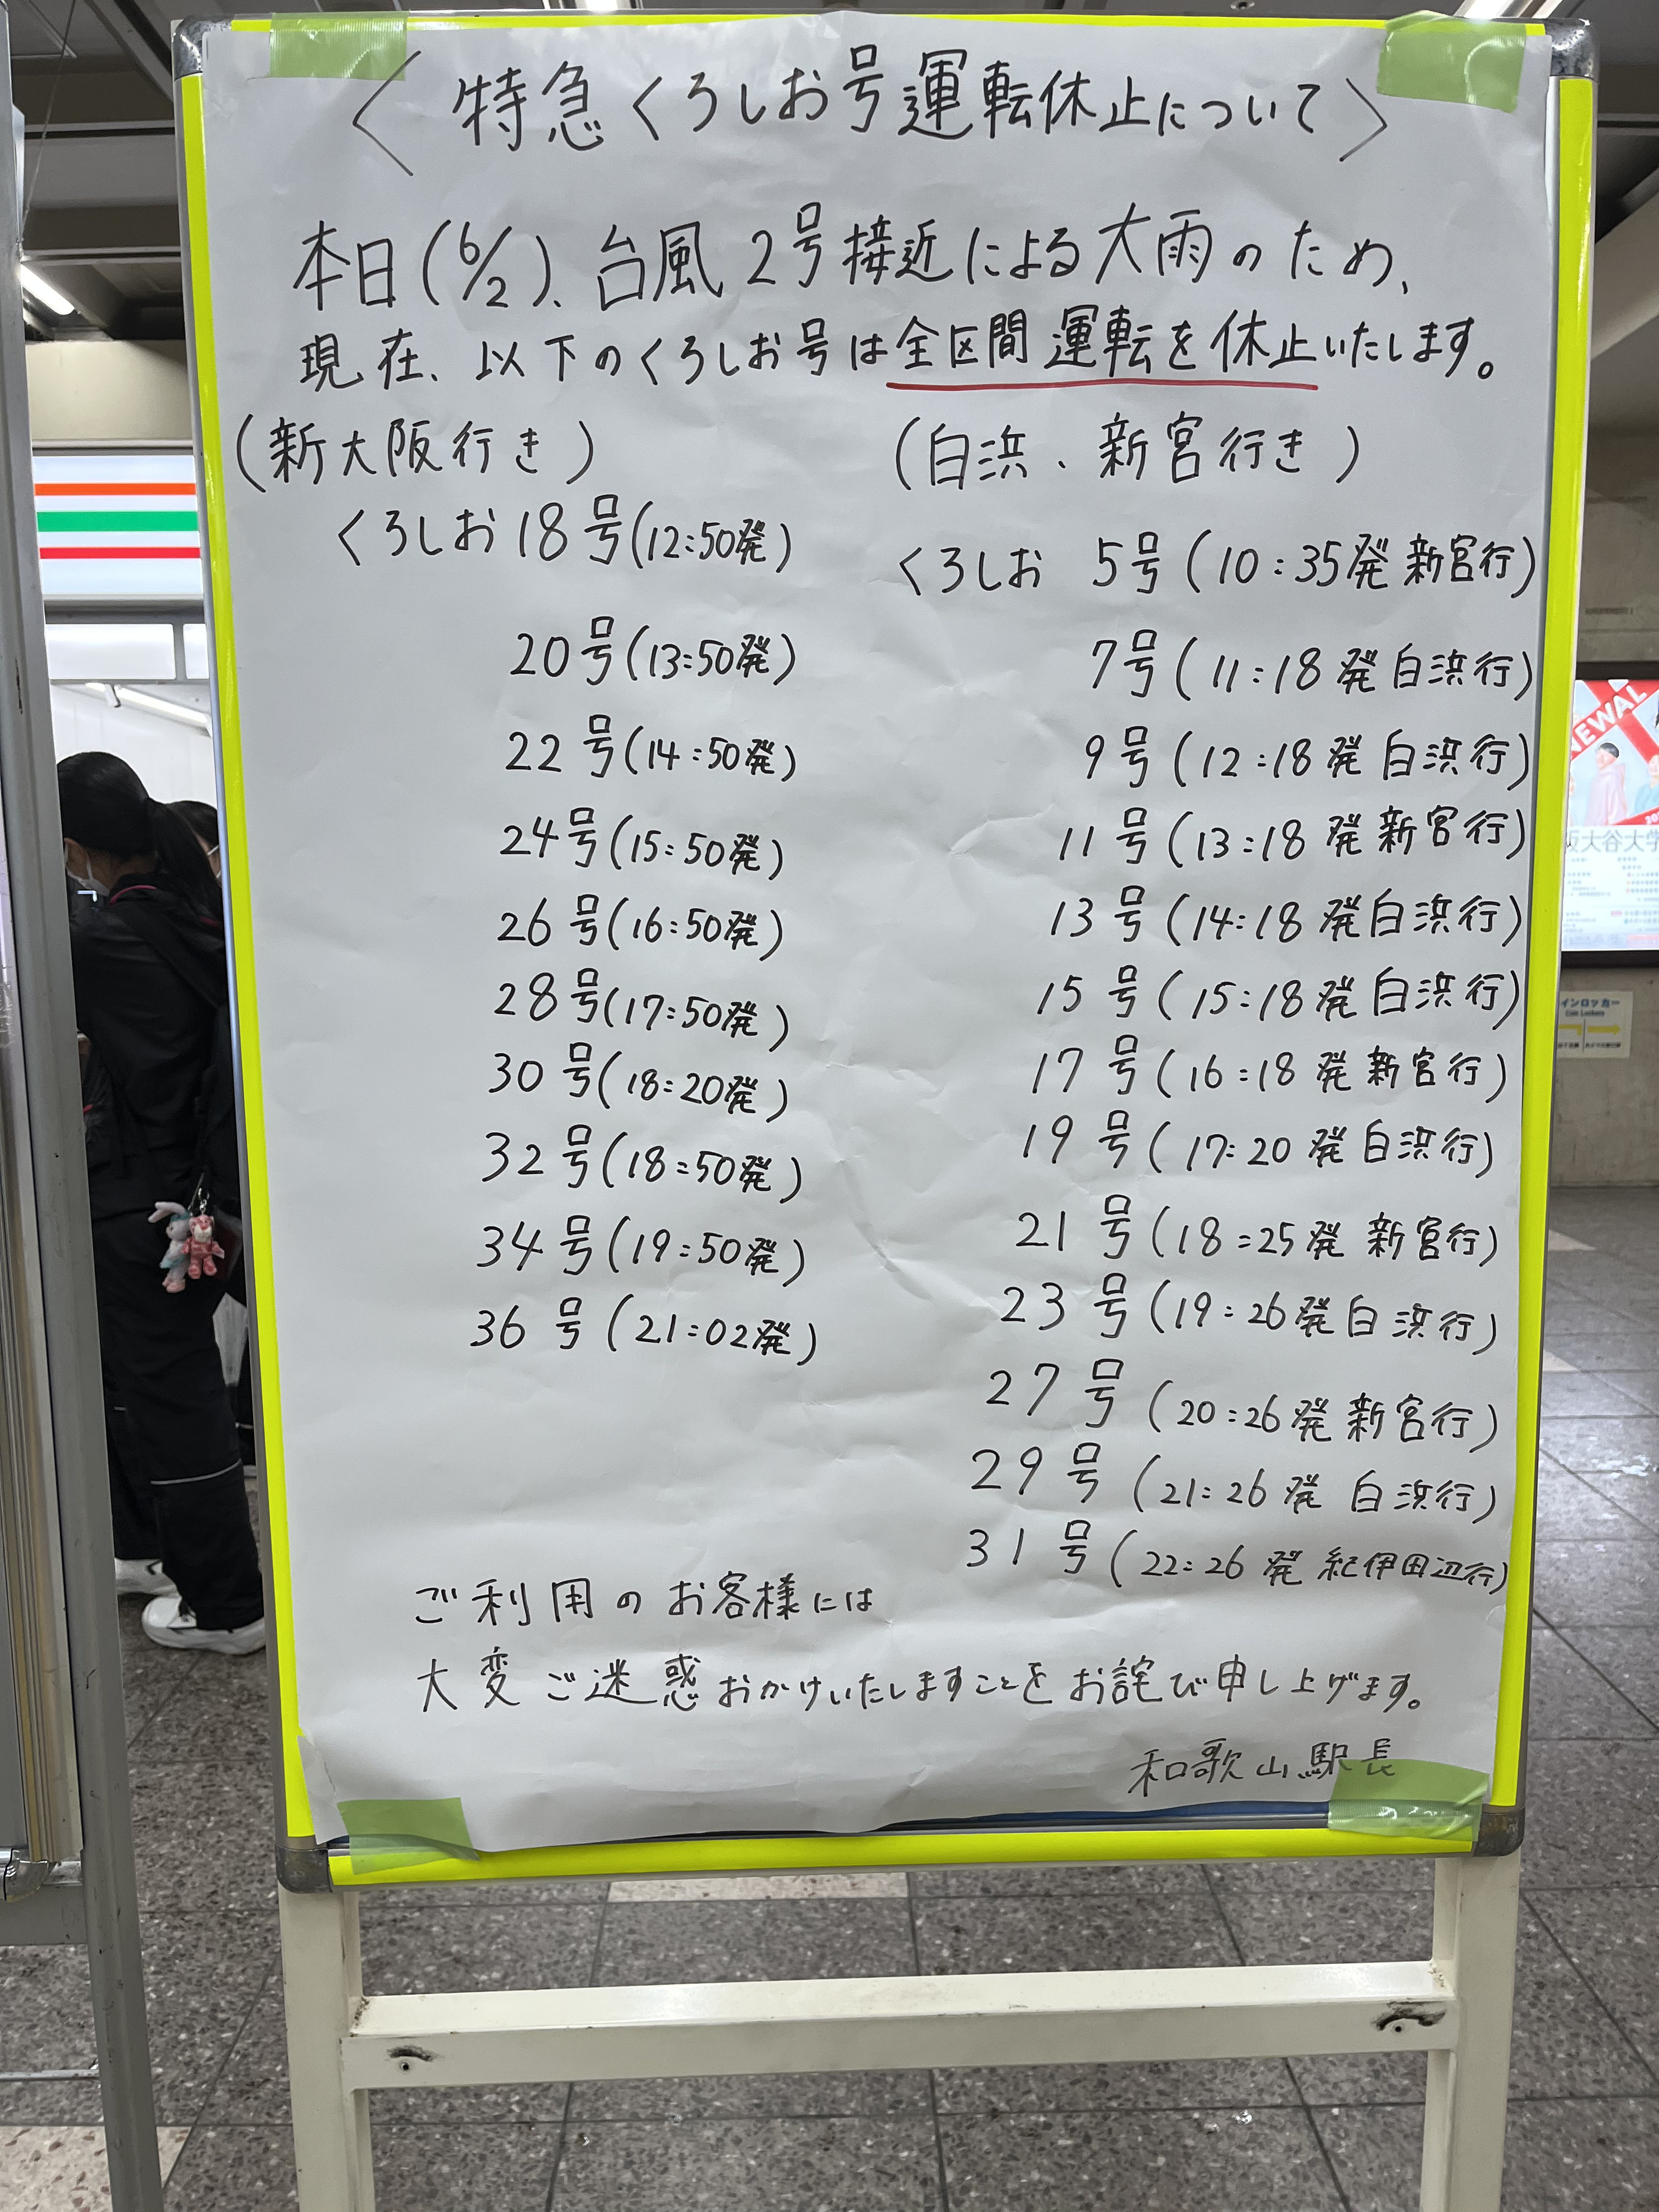 〈特急くろしお号運転休止について〉
本日(6/2)、台風2号接近による大雨のため、
現在、以下のくろしお号は全区間運転を休止いたします。
(新大阪行き)
くろしお18号(12:50発)
20号(13:50発)
22号(14:50発)
24号(15:50発)
26号(16:50発)
28号(17:50発)
30号(18:20発)
32号(18:50発)
34号(19:50発)
36号(21:02発)
(白浜、新宮行き)
くろしお 5号(10:35発新宮行)
7号(11:18発白浜行)
9号(12:18発白浜行)
11号(13:18発新宮行)
13号(14:18発白浜行)
15号(15:18発白浜行)
17号(16:18発新宮行)
19号(17:20発白浜行)
21号(18:25発新宮行)
23号(19:26発白浜行)
27号(20:26発新宮行)
29号(21:26発白浜行)
31号(22:26発紀伊田辺行)
ご利用のお客様には
大変ご迷惑おかけいたしますことをお詫び申し上げます。
和歌山駅長
NEWAL
大谷大学
インロッカー
Coin Lockers